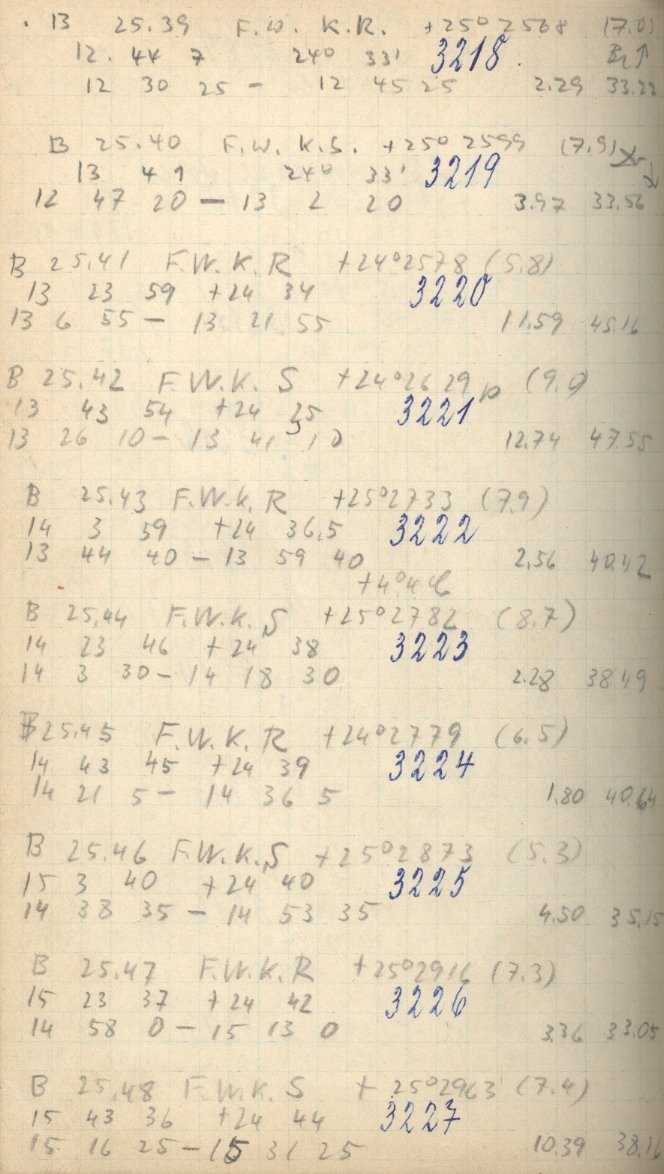 B 25.39 F.W. K.R. +25° 2568 (7.0)
12. 44 7 24° 33' 3218.
12 30 25 - 12 45 25 2.29 33.22
B 25.40 F.W. K.S. +25° 2599 (7.9)
13 4 1 24° 33' 3219
12 47 20 - 13 2 20 3.97 33.56
B 25.41 F.W.K.R +24°2578 (5.8)
13 23 59 +24 34 3220
13 6 55 - 13 21 55 11.59 45.16
B 25.42 F.W.K.S +24°2629 (9.0)
13 43 54 +24 25 3221
13 26 10 - 13 41 10 12.74 47.55
B 25.43 F.W.K.R +25°2733 (7.9)
14 3 59 +24 36.5 3222
13 44 40 - 13 59 40 2.56 40.42
B 25.44 F.W.K.S +25°2782 (8.7)
14 23 46 +24 38 3223
14 3 30 - 14 18 30 2.28 38.49
B 25.45 F.W.K.R +24°2779 (6.5)
14 43 45 +24 39 3224
14 21 5 - 14 36 5 1.80 40.64
B 25.46 F.W.K.S +25°2873 (5.3)
15 3 40 +24 40 3225
14 38 35 - 14 53 35 4.50 35.15
B 25.47 F.W.K.R +25°2916 (7.3)
15 23 37 +24 42 3226
14 58 0 - 15 13 0 3.36 33.05
B 25.48 F.W.K.S + 25°2963 (7.4)
15 43 36 +24 44 3227
15 16 25 - 15 31 25 10.39